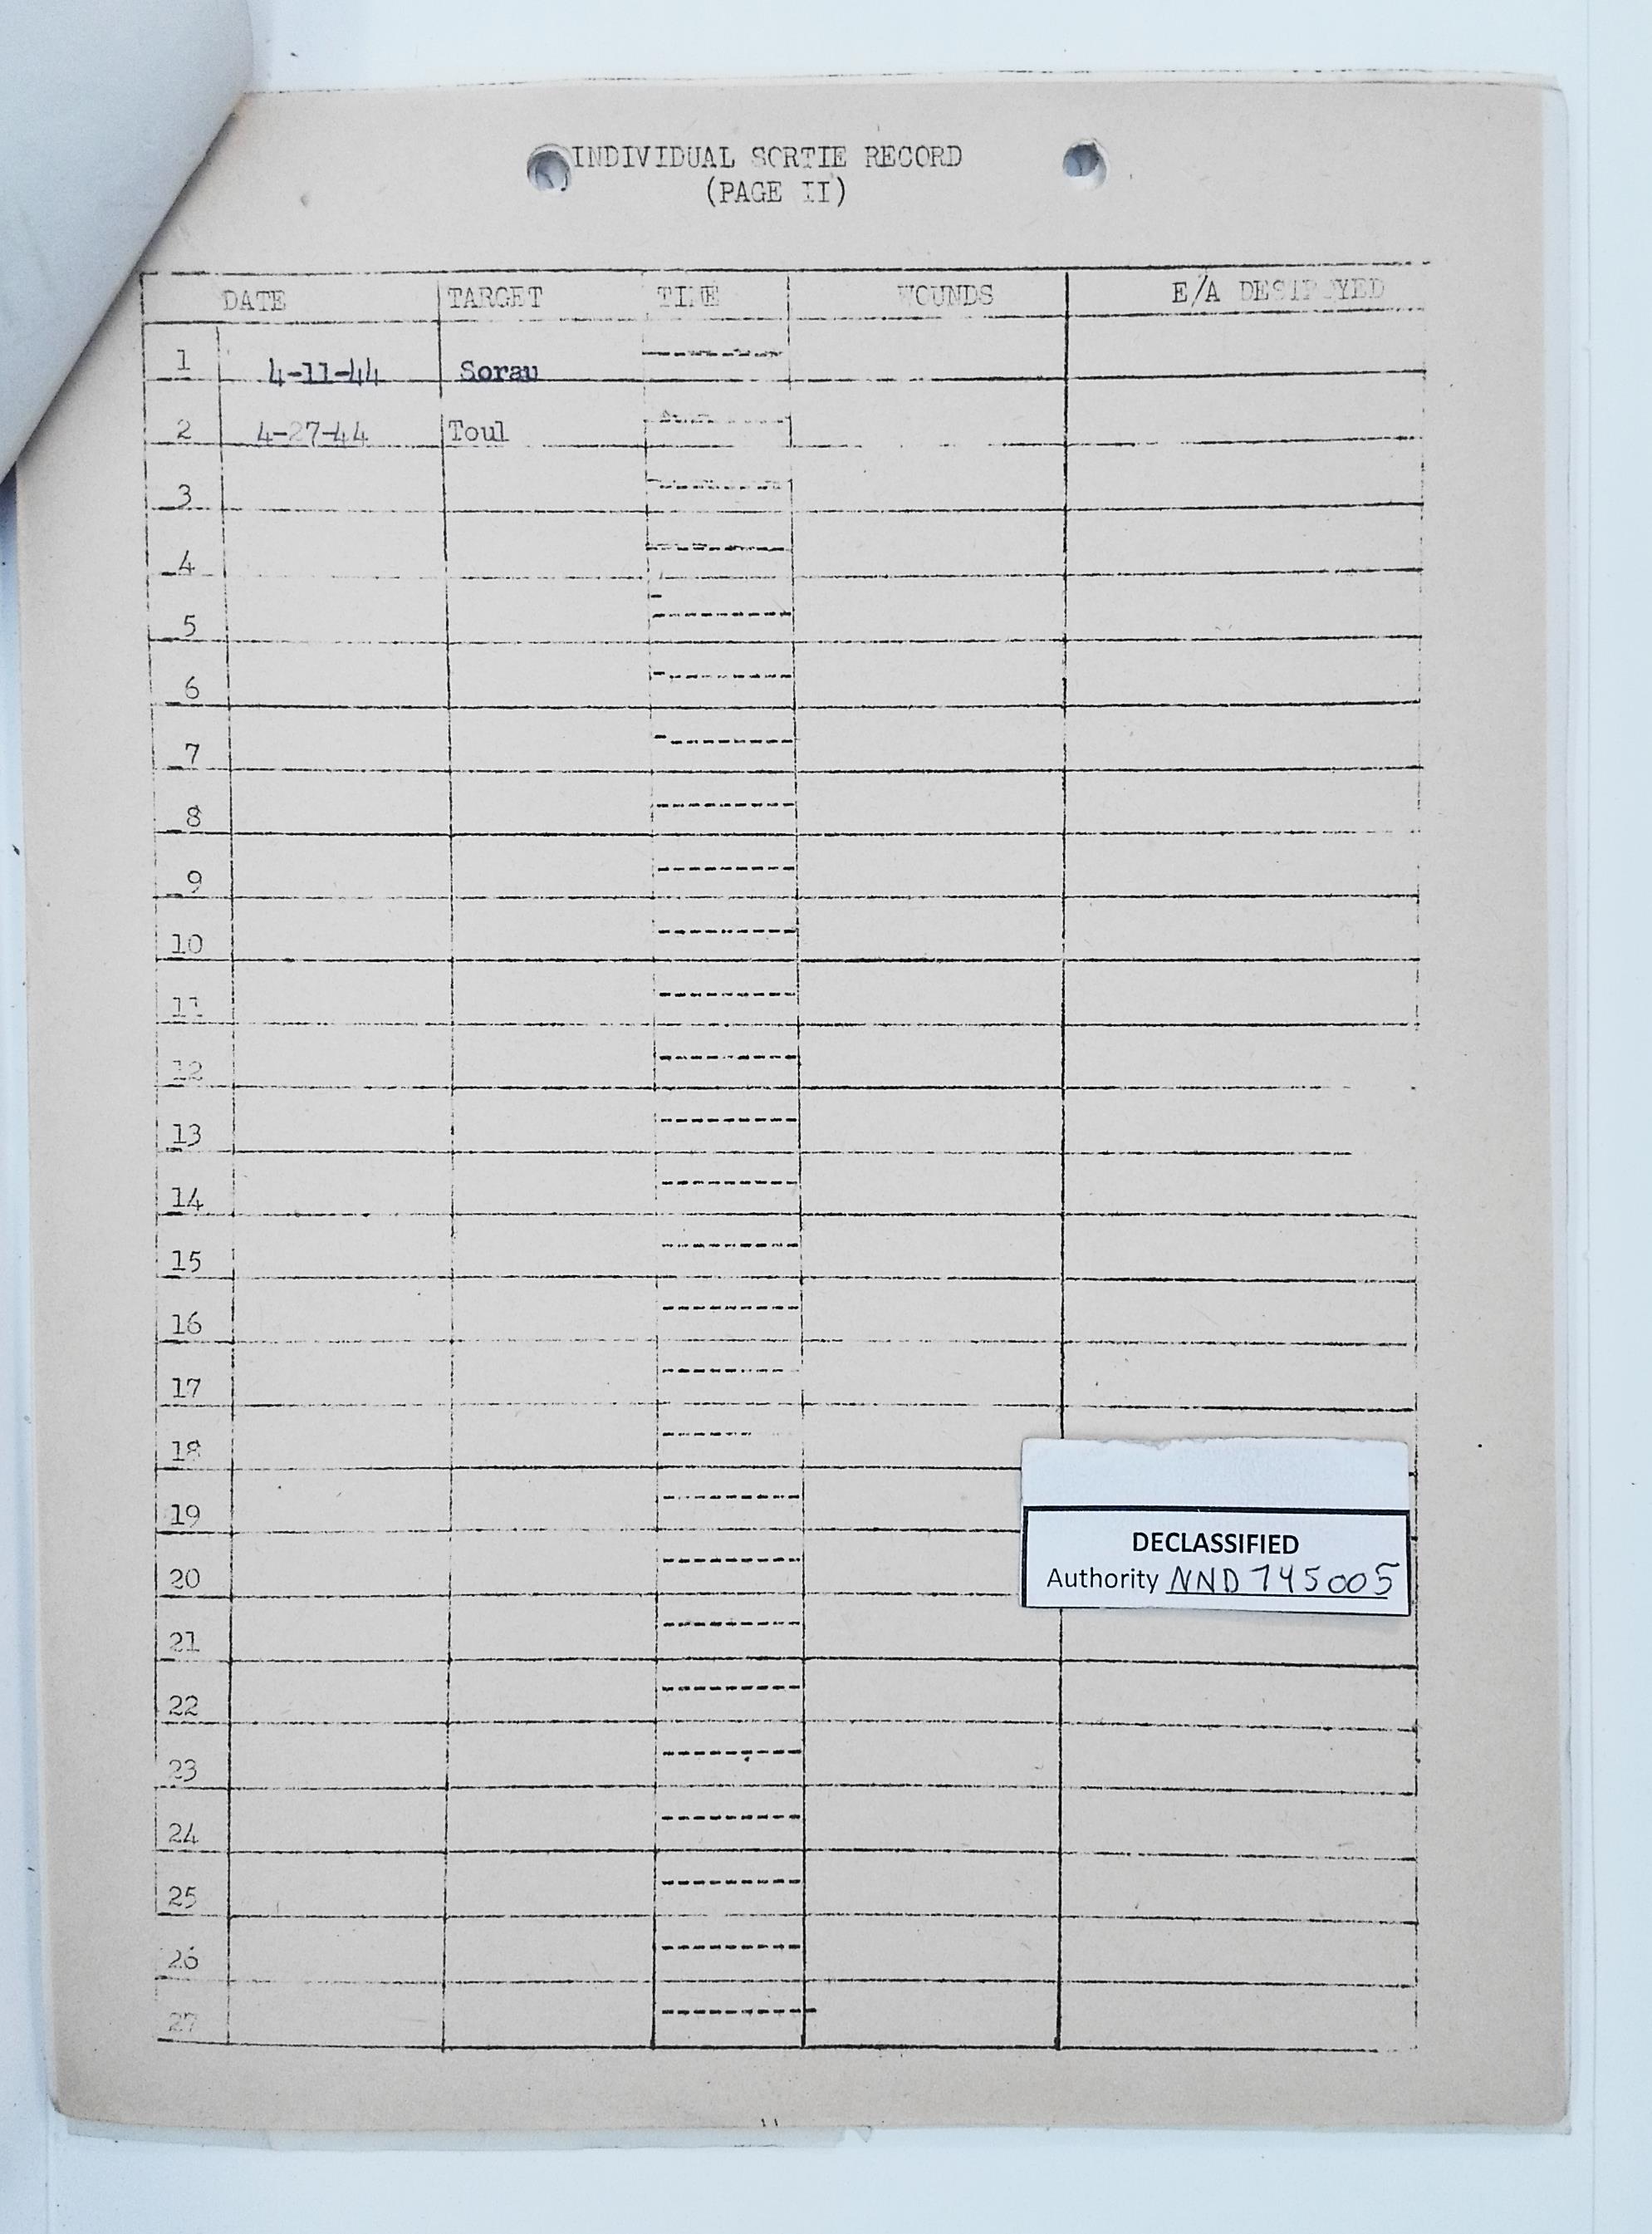 INDIVIDUAL SORTIE RECORD
(PAGE II)
DATE TARGET TIME WOUNDS E/A DESTROYED
1 4-11-44 Sorau
2 4-27-44 Toul
3
4
5
6
7
8
9
10
11
12
13
14
15
16
17
18
19
20
21
22
23
24
25
26
27
DECLASSIFIED
Authority NND 745005